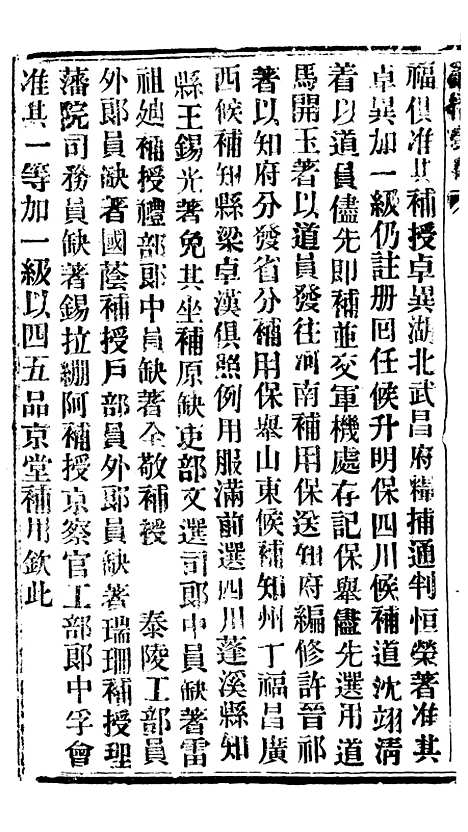 福俱准其補授卓異湖北武昌府糧捕通判恒榮著准其
卓異加一級仍註册回任候升明保四川候補道沈翊清
着以道員儘先即補並交軍機處存記保舉儘先選用道
馬開玉著以道員發往河南補用保送知府編修許晉祁
著以知府分發省分補用保舉山東候補知州丁福昌廣
西候補知縣梁卓漢俱照例用服滿前選四川蓬溪縣知
縣王錫光著免其坐補原缺吏部文選司郎中員缺著雷
祖廸補授禮部郎中員缺著全敬補授 泰陵工部員
外郎員缺著國蔭補授戶部員外郎員缺著瑞珊補授理
藩院司務員缺著錫拉綳阿補授京察官工部郎中孚會
准其一等加一級以四五品京堂補用欽此